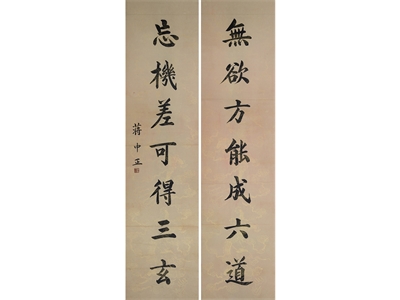 無欲方能成六道
忘機差可得三玄
蔣中正